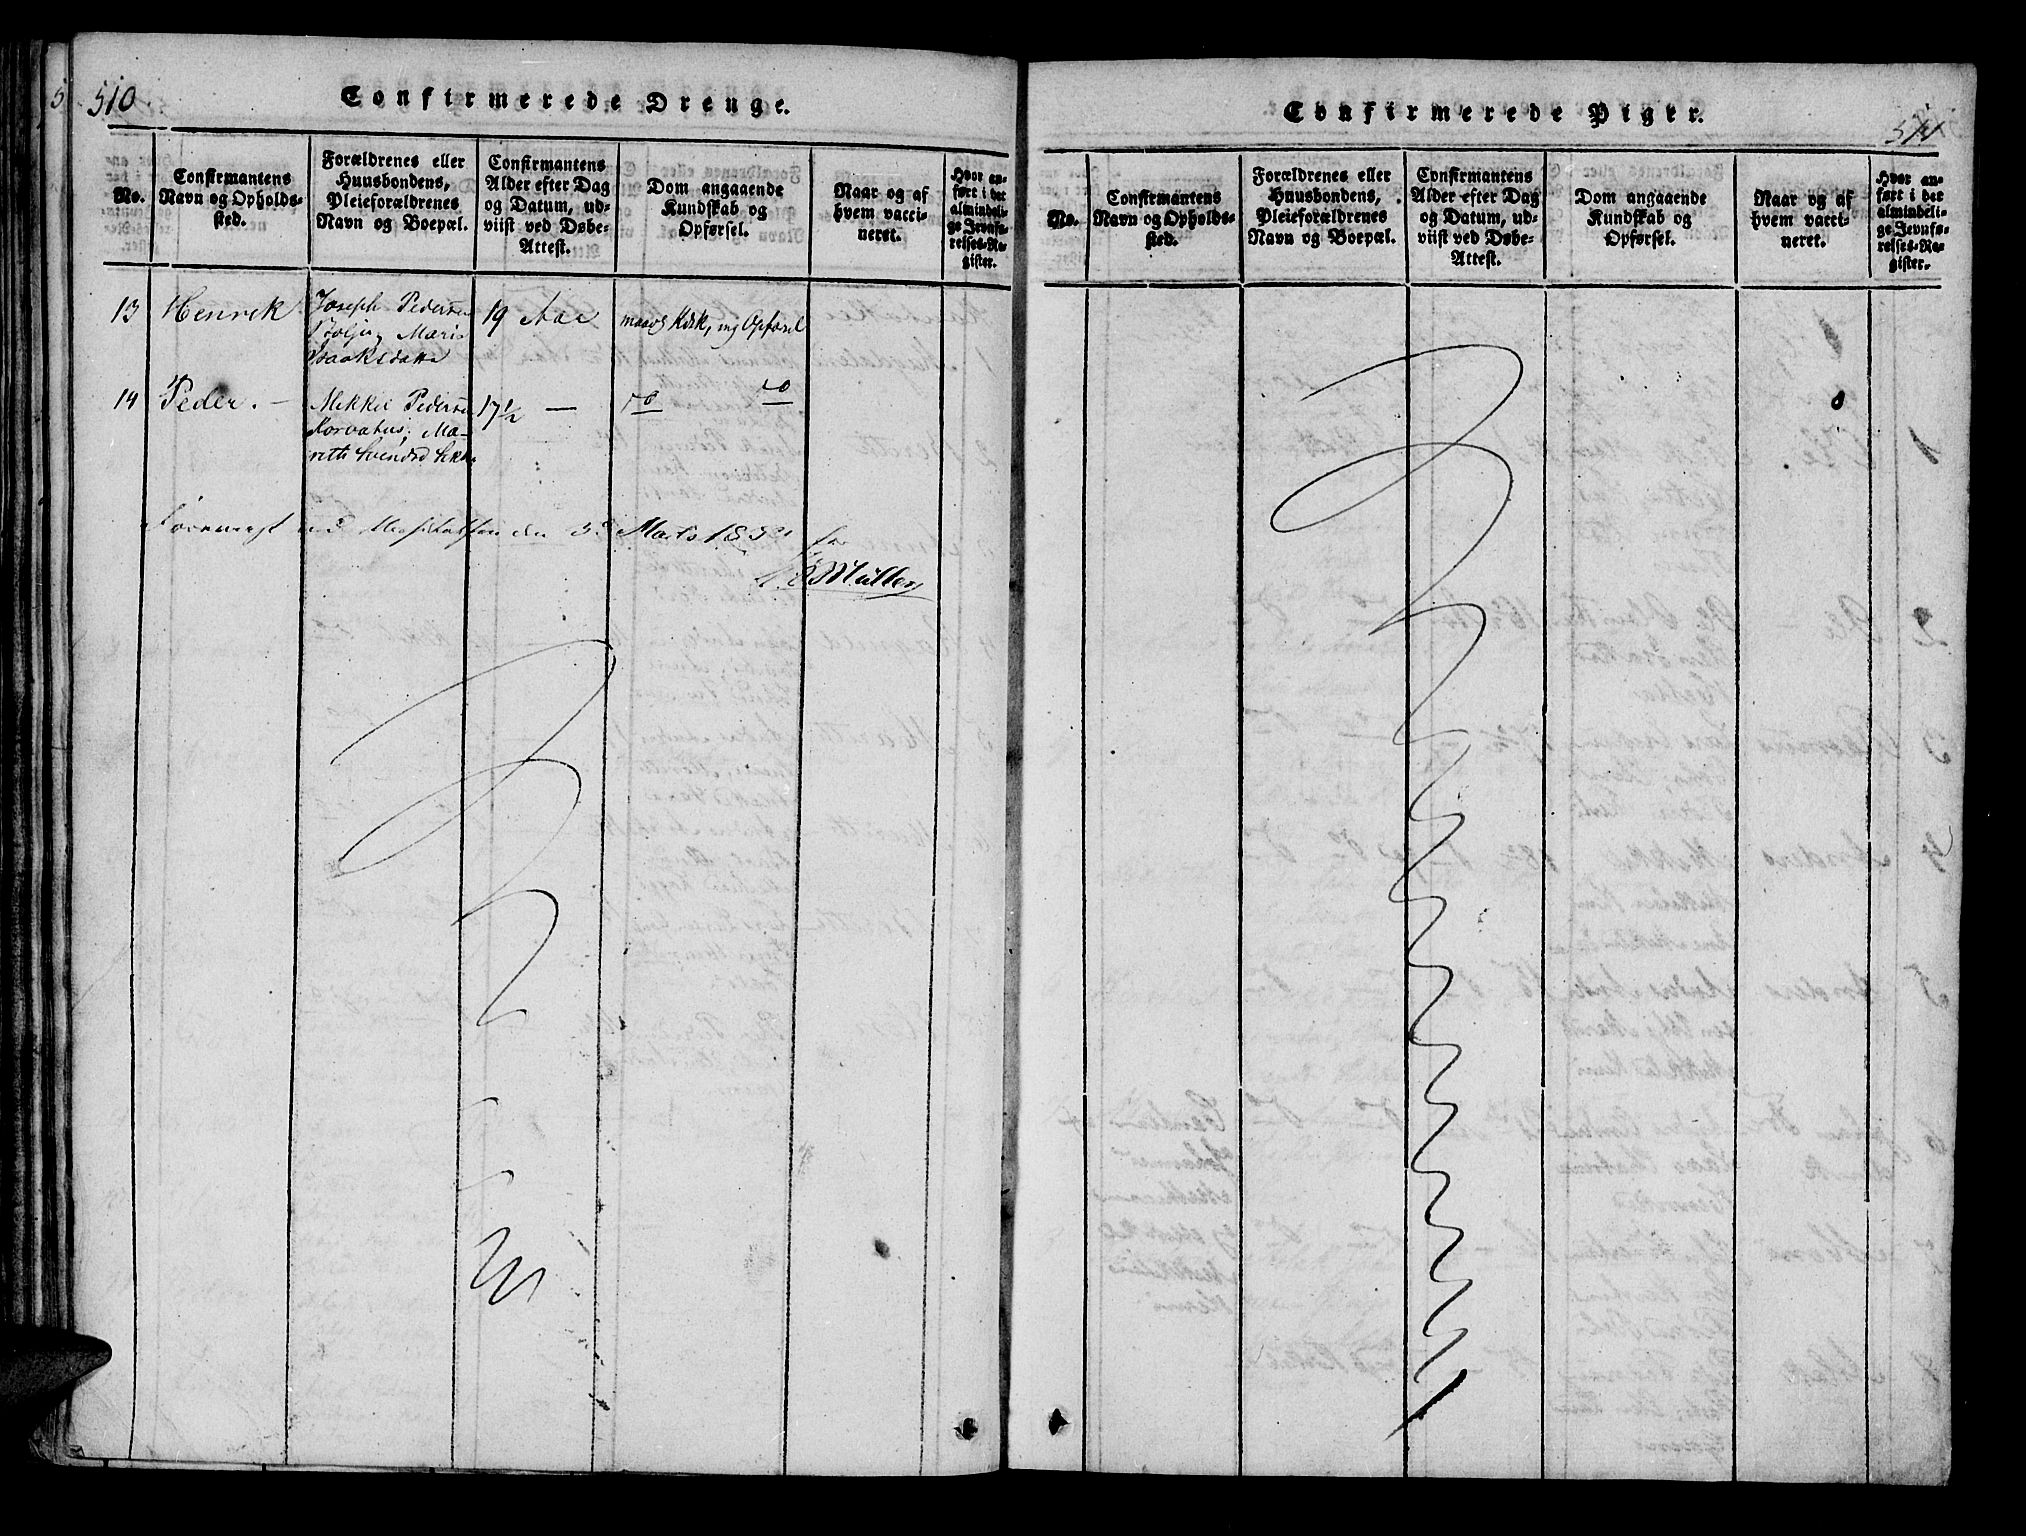 510.
Confirmerede Drenge.
No.
Confirmantens
Navn og Opholds-
sted.
Forældrenes eller
Huusbondens,
Pleieforældrenes
Navn og Boepæl.
Confirmantens
Alder efter Dag
og Datum, ud-
viist ved Døbe-
Attest.
Dom angaaende
Kundskab og
Opførsel.
Naar og af
hvem vacci-
neret.
Hvor an-
ført i det
almindeli-
ge Jevnfø-
relses-Re-
gister.
13
Henrik
Joseph Pedersen
Maria
Isaksdatter
19 Aar
maad Kdsk, og Opførsel
14
Peder. —
Mikkel Pedersen
Korvatus, Ma-
reth Svendsd
17½ —
do
do
den 3d Marts 1831
Müller
Confirmerede Piger.
No.
Confirmantens
Navn og Opholds-
sted.
Forældrenes eller
Huusbondens,
Pleieforældrenes
Navn og Boepæl.
Confirmantens
Alder efter Dag
og Datum, ud-
viist ved Døbe-
Attest.
Dom angaaende
Kundskab og
Opførsel.
Naar og af
hvem vacci-
neret.
Hvor an-
ført i det
almindeli-
ge Jevnfø-
relses-Re-
gister.